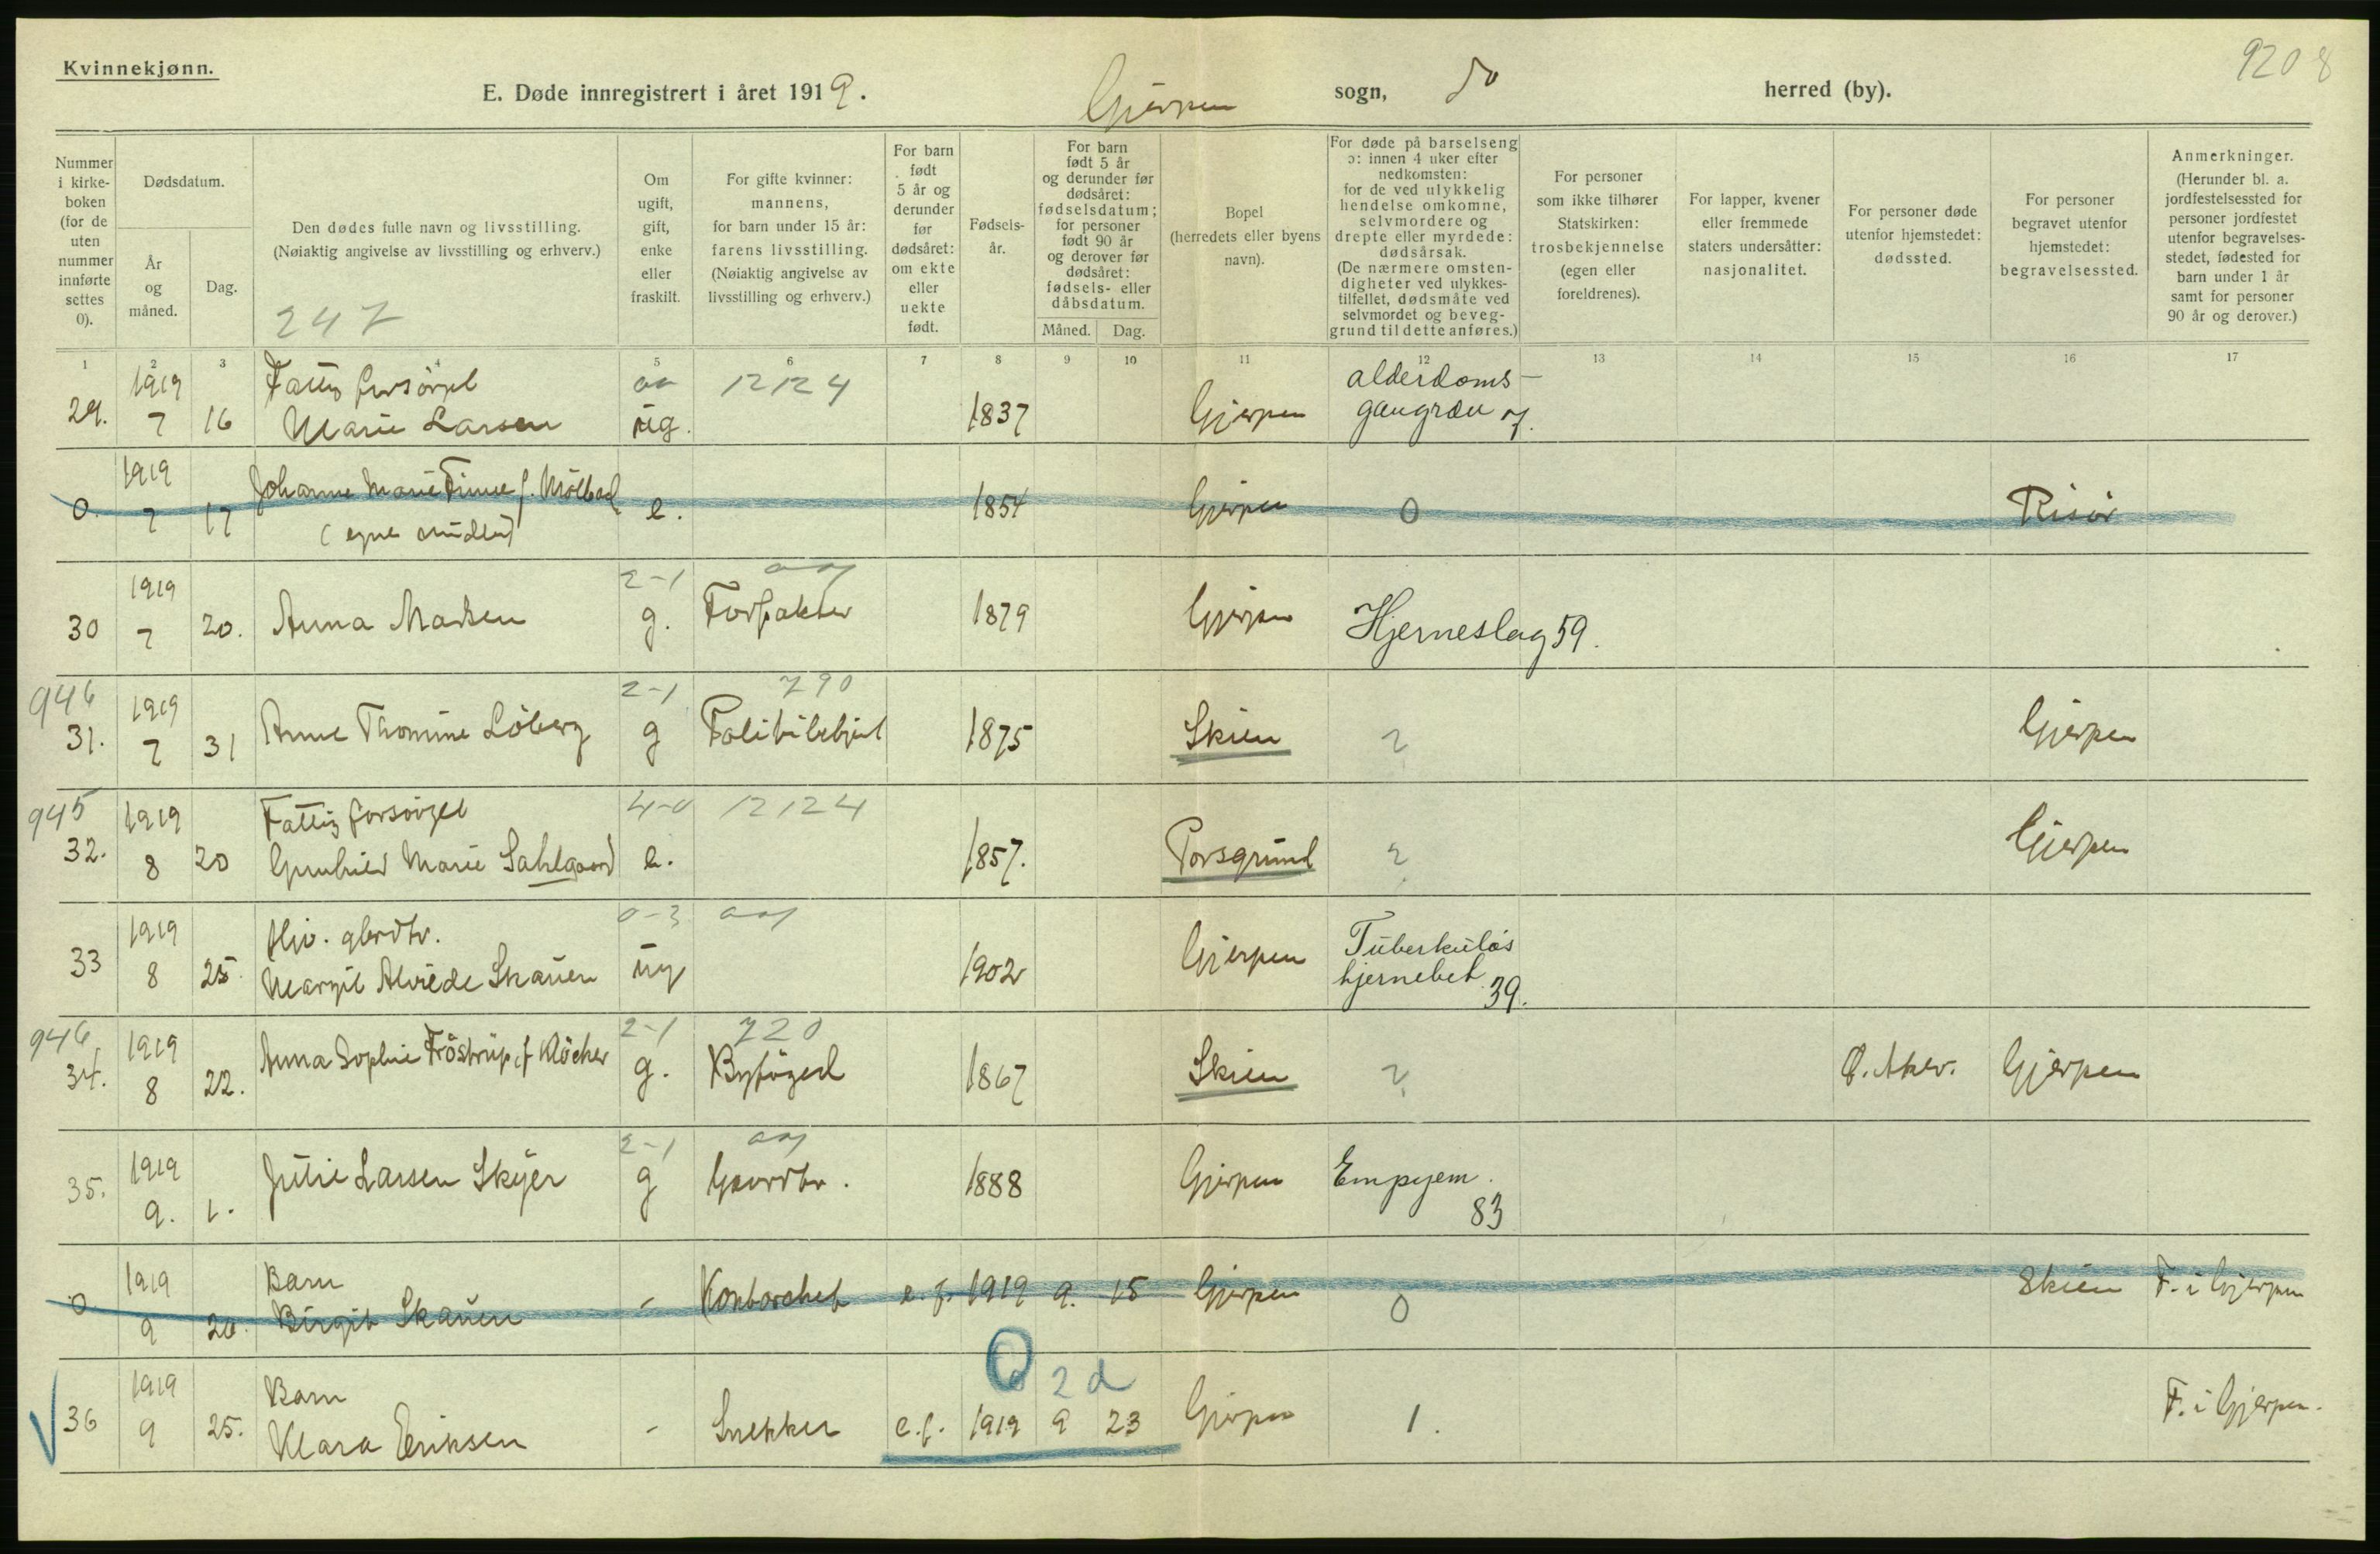 Kvinnekjønn.
9208
E. Døde innregistrert i året 1919. Gjerpen sogn, do herred (by).
Nummer i kirke-boken (for de uten nummer innførte settes 0).
Dødsdatum.
År og måned.
Dag.
Den dødes fulle navn og livsstilling.
(Nøiaktig angivelse av livsstilling og erhverv.)
247
Om ugift, gift, enke eller fraskilt.
For gifte kvinner: mannens, for barn under 15 år: farens livsstilling. (Nøiaktig angivelse av livsstilling og erhverv.)
For barn født 5 år og derunder før dødsåret: om ekte eller uekte født.
Fødsels-år.
For barn født 5 år og derunder før dødsåret: fødselsdatum; for personer født 90 år og derover før dødsåret: fødsels- eller dåbsdatum.
Måned. Dag.
Bopel (herredets eller byens navn).
For døde på barselseng ɔ: innen 4 uker efter nedkomsten: for de ved ulykkelig hendelse omkomne, selvmordere og drepte eller myrdede: dødsårsak. (De nærmere omsten-digheter ved ulykkes-tilfellet, dødsmåte ved selvmordet og beveg-grund til dette anføres.)
For personer som ikke tilhører Statskirken: trosbekjennelse (egen eller foreldrenes).
For lapper, kvener eller fremmede staters undersåtter: nasjonalitet.
For personer døde utenfor hjemstedet: dødssted.
For personer begravet utenfor hjemstedet: begravelsessted.
Anmerkninger. (Herunder bl. a. jordfestelsessted for personer jordfestet utenfor begravelses-stedet, fødested for barn under 1 år samt for personer 90 år og derover.)
1 2 3 4 5 6 7 8 9 10 11 12 13 14 15 16 17
1919 Fattig forsørget 12124 alderdoms-
29. 7 16 Marie Larsen ug. 1837 Gjerpen gangræn
1919 Johanne Marie Finne f. Mölbach
0. 7 17 (egne midler) e. 1854 Gjerpen 0 Risör
1919 2-1
30 7 20. Anna Madsen g. Forpakter 1879 Gjerpen Hjerneslag 59.
946 1919 2-1 790
31. 7 31 Anne Thomine Löberg g Politibetjent 1875 Skien ? Gjerpen
945 1919 Fattig forsörget 4-0 12124
32. 8 20 Gunhild Marie Sahlgaard e. 1857. Porsgrund ? Gjerpen
1919 Hjv. gbrdtr. 0-3 Tuberkuløs
33 8 25. Margit Alvilde Skauen ug 1902 Gjerpen hjernebet. 39.
946 1919 Anna Sophie Fröstrup f. Klöcker 2-1 720
34. 8 22. g. Byfoged 1867 Skien ? V. Aker. Gjerpen
1919 2-1
35. 9. 1. Julie Larsen Skyer g Gaardbr. 1888 Gjerpen Empyem. 83
1919 Barn
0 9 20. Birgit Skauen - Kontorchef e. f. 1919 9. 15 Gjerpen 0 Skien F. i Gjerpen
0 2 d
1919 Barn
36 9 25. Klara Eriksen - Snekker e. f. 1919 9 23 Gjerpen 1. F. i Gjerpen.